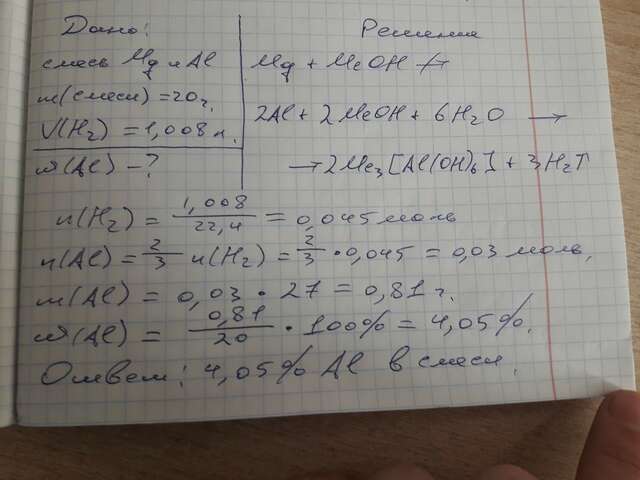 Дано:
смесь Mg и Al
m(смеси) = 20 г.
V(H₂) = 1,008 л.
ω(Al) - ?
Решение
Mg + MeOH ↛
2Al + 2MeOH + 6H₂O →
→ 2Me₃[Al(OH)₆] + 3H₂↑
n(H₂) = 1,008/22,4 = 0,045 моль
n(Al) = 2/3 n(H₂) = 2/3 · 0,045 = 0,03 моль,
m(Al) = 0,03 · 27 = 0,81 г.
ω(Al) = 0,81/20 · 100% = 4,05%.
Ответ: 4,05% Al в смеси.